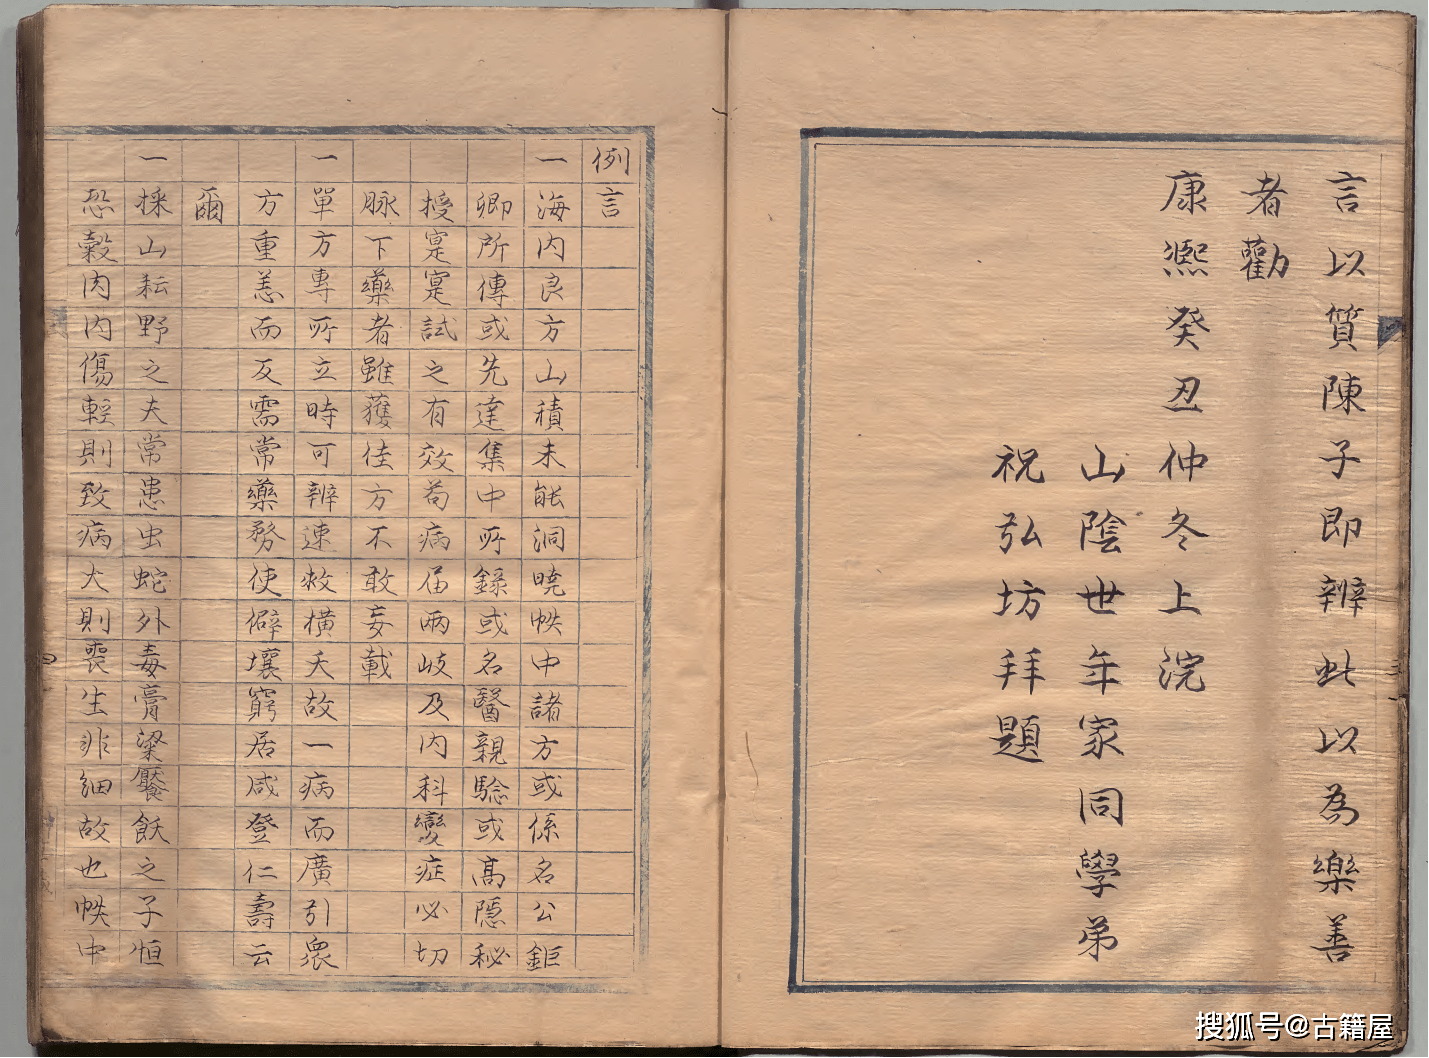 言以質陳子即辨此以為樂善
者勸
康熈癸丑仲冬上浣
山陰世年家同學弟
祝弘坊拜題
例言
一海内良方山積未能洞曉帙中諸方或係名公鉅
卿所傳或先達集中所錄或名醫親驗或高隱秘
授寔寔試之有效茍病屆兩岐及内科變症必切
脉下藥者雖獲佳方不敢妄載
一單方專所立時可辨速救橫夭故一病而廣引衆
方重恙而反需常藥務使僻壤窮居咸登仁壽云
爾
一採山耘野之夫常患虫蛇外毒膏粱饜飫之子恒
恐穀肉内傷輕則致病大則喪生非細故也帙中
搜狐号@古籍屋